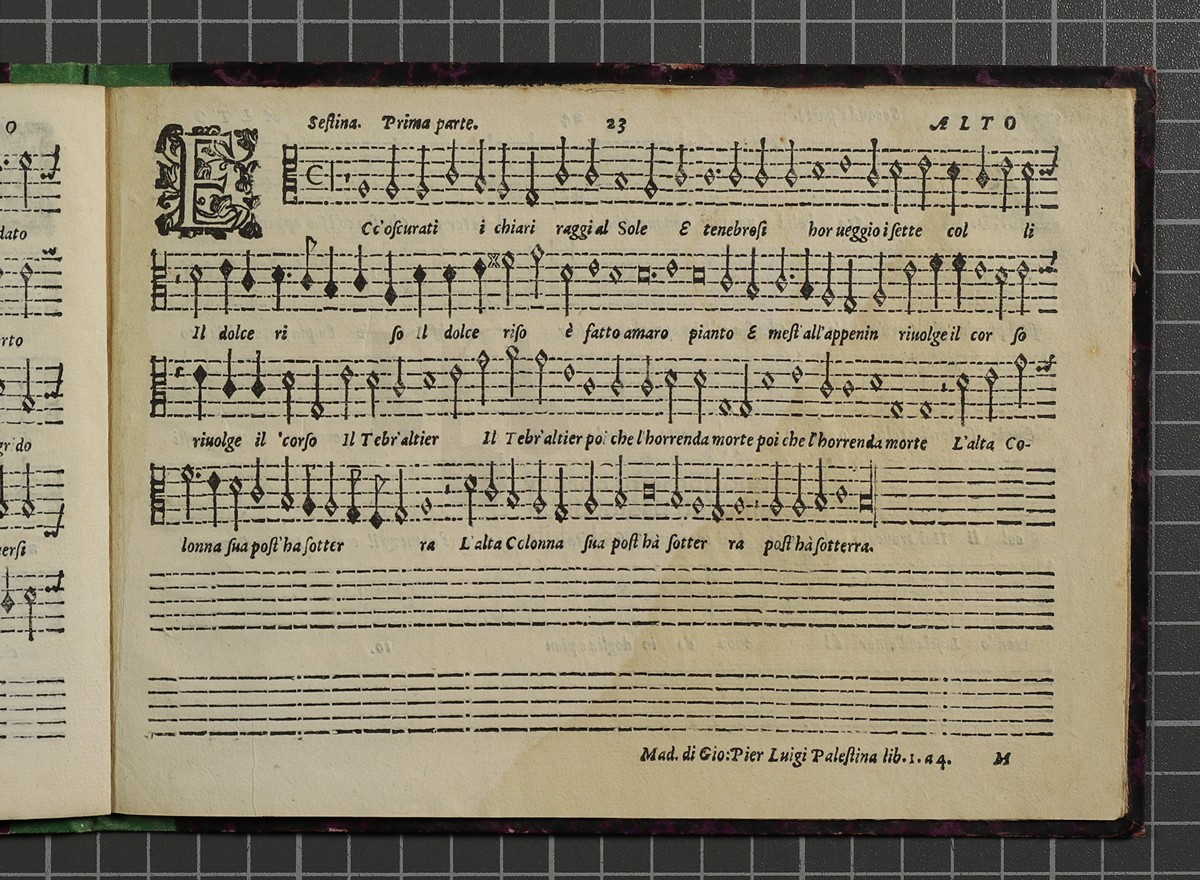 O
dato
rto
grido
versi
Seſtina. Prima parte. 23 ALTO
E
Cc'oſcurati i chiari raggi al Sole E tenebroſi hor ueggio i ſette col li
Il dolce ri ſo Il dolce riſo è fatto amaro pianto E meſt'all'appenin riuolge il cor ſo
riuolge il corſo Il Tebr'altier Il Tebr'altier poi che l'horrenda morte poi che l'horrenda morte L'alta Co-
lonna ſua poſt'ha ſotter ra L'alta Colonna ſua poſt'hà ſotter ra poſt'hà ſotterra.
Mad. di Gio: Pier Luigi Paleſtina lib. 1. a 4. M